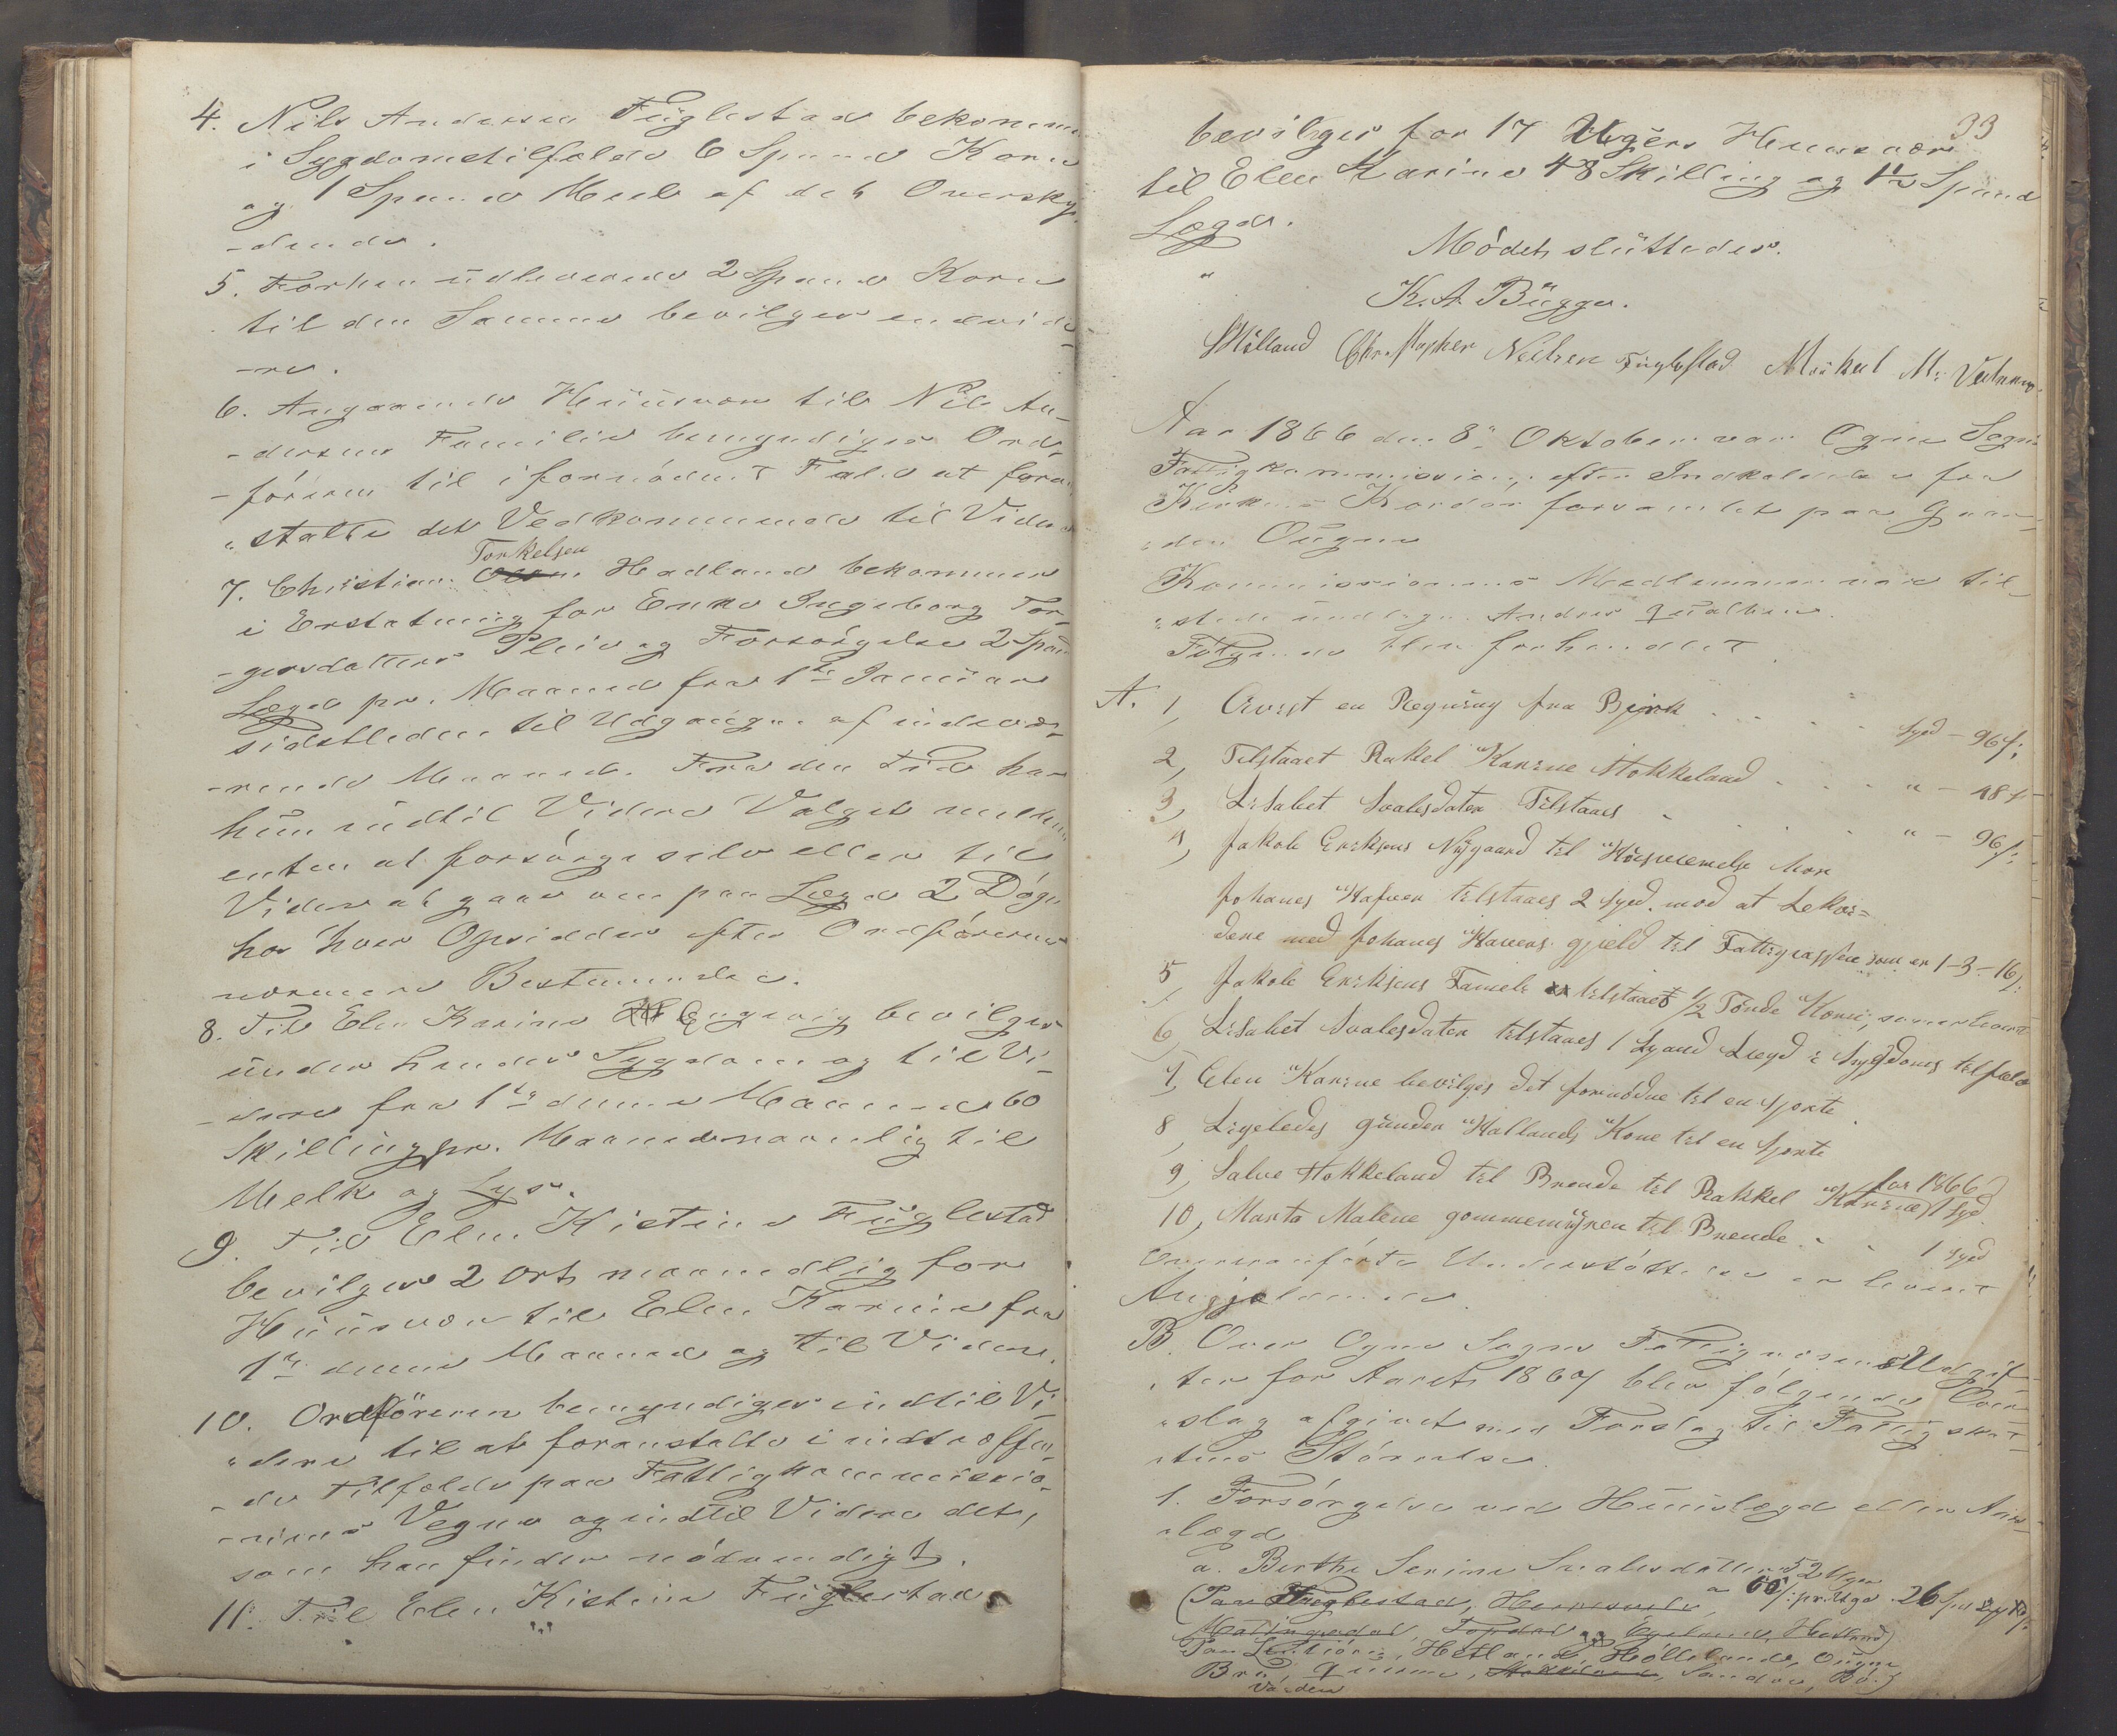 4. Nils Andersen Fuglestad bekommer
i Sygdomstilfælde 6 Spand Korn
og 1 Spand Meel af det Oversky-
-dende.
5. Forhen udleverede 2 Spand Korn
til den Samme bevilges endvide-
-re.
6. Angaaende Huusvær til Nils An-
-dersens Familie bemyndiges Ord-
-föreren til i fornödent Fald at foran-
"stalte det Vedkommende til Videre
7. Christian Olsen Torkelsen Hadland bekommer
i Erstatning for Enke Ingeborg Tor-
-gersdatters Pleie og Forsörgelse 2 Spd
Lægd pr. Maaned fra 1ste Januar
sidstleden til Udgangen af indevæ-
-rende Maaned. Fra den Tid har
hun indtil Videre Valget mellem
enten at forsörge selv eller til
Videre at gaae om paa Lægd 2 Dögn
hos hver Opsidder efter Ordförerens
nærmere Bestemmelse.
8. Til Elen Karine Engevig bevilges
under hendes Sygdom og til Vi-
-dere fra 1ste denne Maaned 60
Skilling pr. Maaned navnlig til
Melk og Lys.
9. Til Elen Kistine Fuglestad
bevilges 2 Ort maanedlig for
Huusvær til Elen Karine fra
1ste denne Maaned og til Videre.
10. Ordföreren bemyndiges indtil Vi-
"dere til at foranstalte i indtræffen-
-de Tilfælde paa Fattigkommissio-
-nens Vegne og indtil Videre det,
som han finder nödvendigt.
11. Til Elen Kistine Fuglestad
33
bevilges for 17 Ugers Huusvær
til Elen Karine 48 Skilling og 1 1/2 Spand
Lægd.
Mödet sluttedes.
K. A. Bügge.
Christopher Nielsen Fuglestad
Aar 1866 den 8de Oktober var Ogne Sogns
Fattigkommission efter Indkaldelse fra
forsamlet paa Gaar-
"den Ougne
Kommissionens Medlemmer var til-
"stede undtagen Anders Qualbein.
Fölgende blev forhandlet
A. 1, Avist en Regning fra Bjerk . . . Spd – 96 s:
2, Tilstaaet Rakel Karine Stokkeland . . . " – 48 s
3, Lisabet Svalesdater Tilstaaes . . . " – 96 s:
4, Jakob Eriksens Nygaard til Huusværelse Mor
Johanes Hafven tilstaaes 2 Spd. mod at Lekvi-
dere med Johanes Havens gjeld til Fattigcassen som er 1-3-16 s:
5, Jakob Eriksens Famele tilstaaet 1/2 Tønde Korn,
6, Lisabet Svalesdater tilstaaes 1 Spand Lægd i Sygdoms tilfæld
7, Elen Karine bevilges det fornødne til en Sjorte
8, Ligeledes Gunder Hallands Kone til en Sjorte
9, Salve Stokkeland til Brende til Rakkel Karine for 1866 1 Spd.
10, Marta Malene Gommemyren til Brende . . 1 Spd
Ovenanförte Understöttelse er
Angjeldende.
B. Over Ogne Sogns Fattigvæsens Udgif-
"ter for Aaret 1867 blev fölgende Over-
"slag afgivet med Forslag til Fattigskat-
"tens Störrelse.
1. Forsörgelse ved Huuslægd eller Aars-
"lægd
a. Berthe Serine Svalesdatter 52 Uger
(Paa Fuglestad,
Hetland, Höllland, Ougne
Bru, Stokkeland,